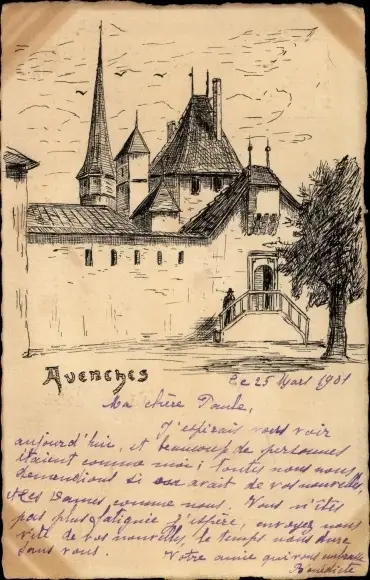 Avenches
Le 25 Mars 1901
Ma chère Paule,
J'espérais vous voir
aujourd'hui, et beaucoup de personnes
étaient comme moi ; toutes nous nous
demandions si on avait de vos nouvelles,
et les comme nous. Vous n'êtes
pas plus fatiguée j'espère, envoyez nous
vite de vos nouvelles, le temps nous dure
sans vous.
Votre amie qui vous embrasse
Bénédicte